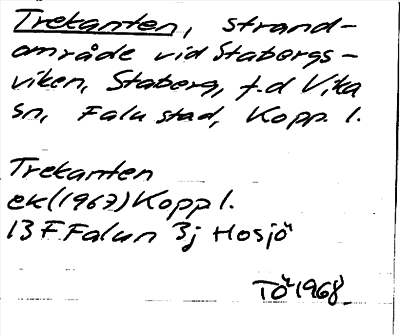 Trekanten, strand-
område vid Stabergs-
viken, Staberg, f.d Vika
sn, Falu stad, Kopp. l.
Trekanten
ek(1967) Kopp l.
13 F Falun 3j Hosjö
Tö 1968